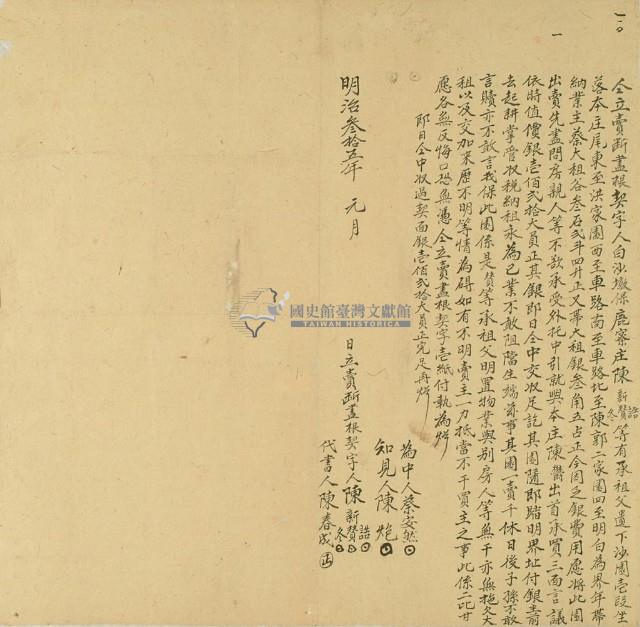 仝立賣斷盡根契字人白沙墩保鹿寮庄陳新冬贊語等有承祖父遺下沙園壹段坐
落本庄尾東至洪家園西至車路南至車路北至陳郭二家園四至明白為界年帶
納業主蔡大租谷叁石弍斗四升正又帶大租銀叁角五占正今因乏銀費用愿將此園
出賣先盡問房親人等不欲承受外托中引就與本庄陳欝出首承買三面言議
依時值價銀壹佰弍拾大員正其銀即日仝中交收足訖其園隨即踏明界址付銀主前
去起耕掌管收稅納租永為己業不敢阻擋生端滋事其園一賣千休日後子孫不敢
言贖亦不敢言找保此園係是贊等承祖父明置物業與别房人等無干亦無拖欠大
租以及交加來歷不明等情為碍如有不明賣主一力抵當不干買主之事此係二比甘
愿各無反悔口恐無憑仝立賣盡根契字壹紙付執為炤
即日仝中收過契面銀壹佰弍拾大員正完足再炤
為中人蔡安然
知見人陳炮
明治叁拾五年 元月 日立賣斷盡根契字人陳新冬贊語
代書人陳春成
國史館臺灣文獻館
TAIWAN HISTORICA